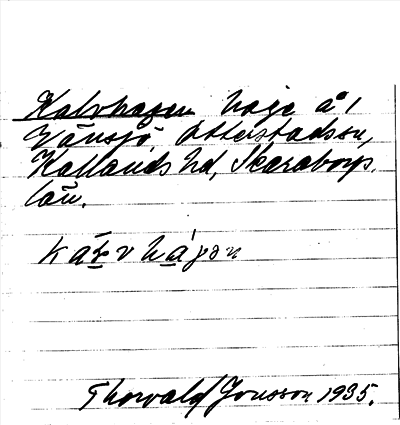 Kalvhagen hage å 1
Vänsjö, Otterstadssn,
Kållands hd, Skaraborgs
län.
Thorvald Jonsson 1935.